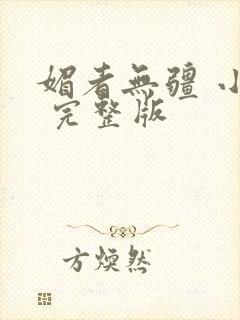 媚者無疆 小
完整版
方煥然